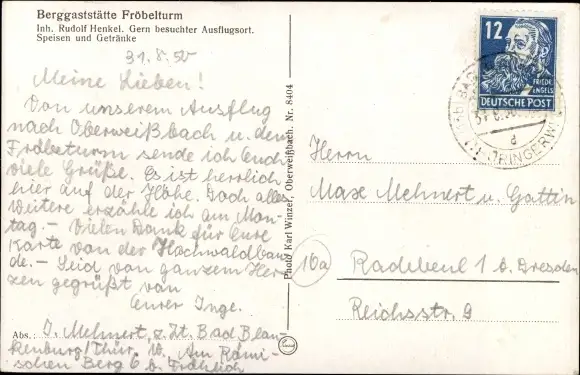 Berggaststätte Fröbelturm
Inh. Rudolf Henkel. Gern besuchter Ausflugsort.
Speisen und Getränke
31.8.50
Meine Lieben!
Von unserem Ausflug
nach Oberweißbach u. dem
Fröbelturm sende ich Euch
viele Grüße. Es ist herrlich
hier auf der Höhe. Doch alles
weitere erzähle ich am Mon-
tag. – Vielen Dank für Eure
Karte von der Hochwaldbau
de. – Seid von ganzem Her-
zen gegrüßt von
Eurer Inge.
Abs.: I. Mehnert, z. Zt. Bad Blan-
kenburg/Thür. W. Am Römi-
schen Berg 6 b. Fröhlich
Photo Karl Winzer, Oberweißbach. Nr. 8404
12
FRIEDR.
ENGELS
DEUTSCHE POST
d
Herrn
Max Mehnert u. Gattin
10a
Radebeul 1 b. Dresden
Reichsstr. 9